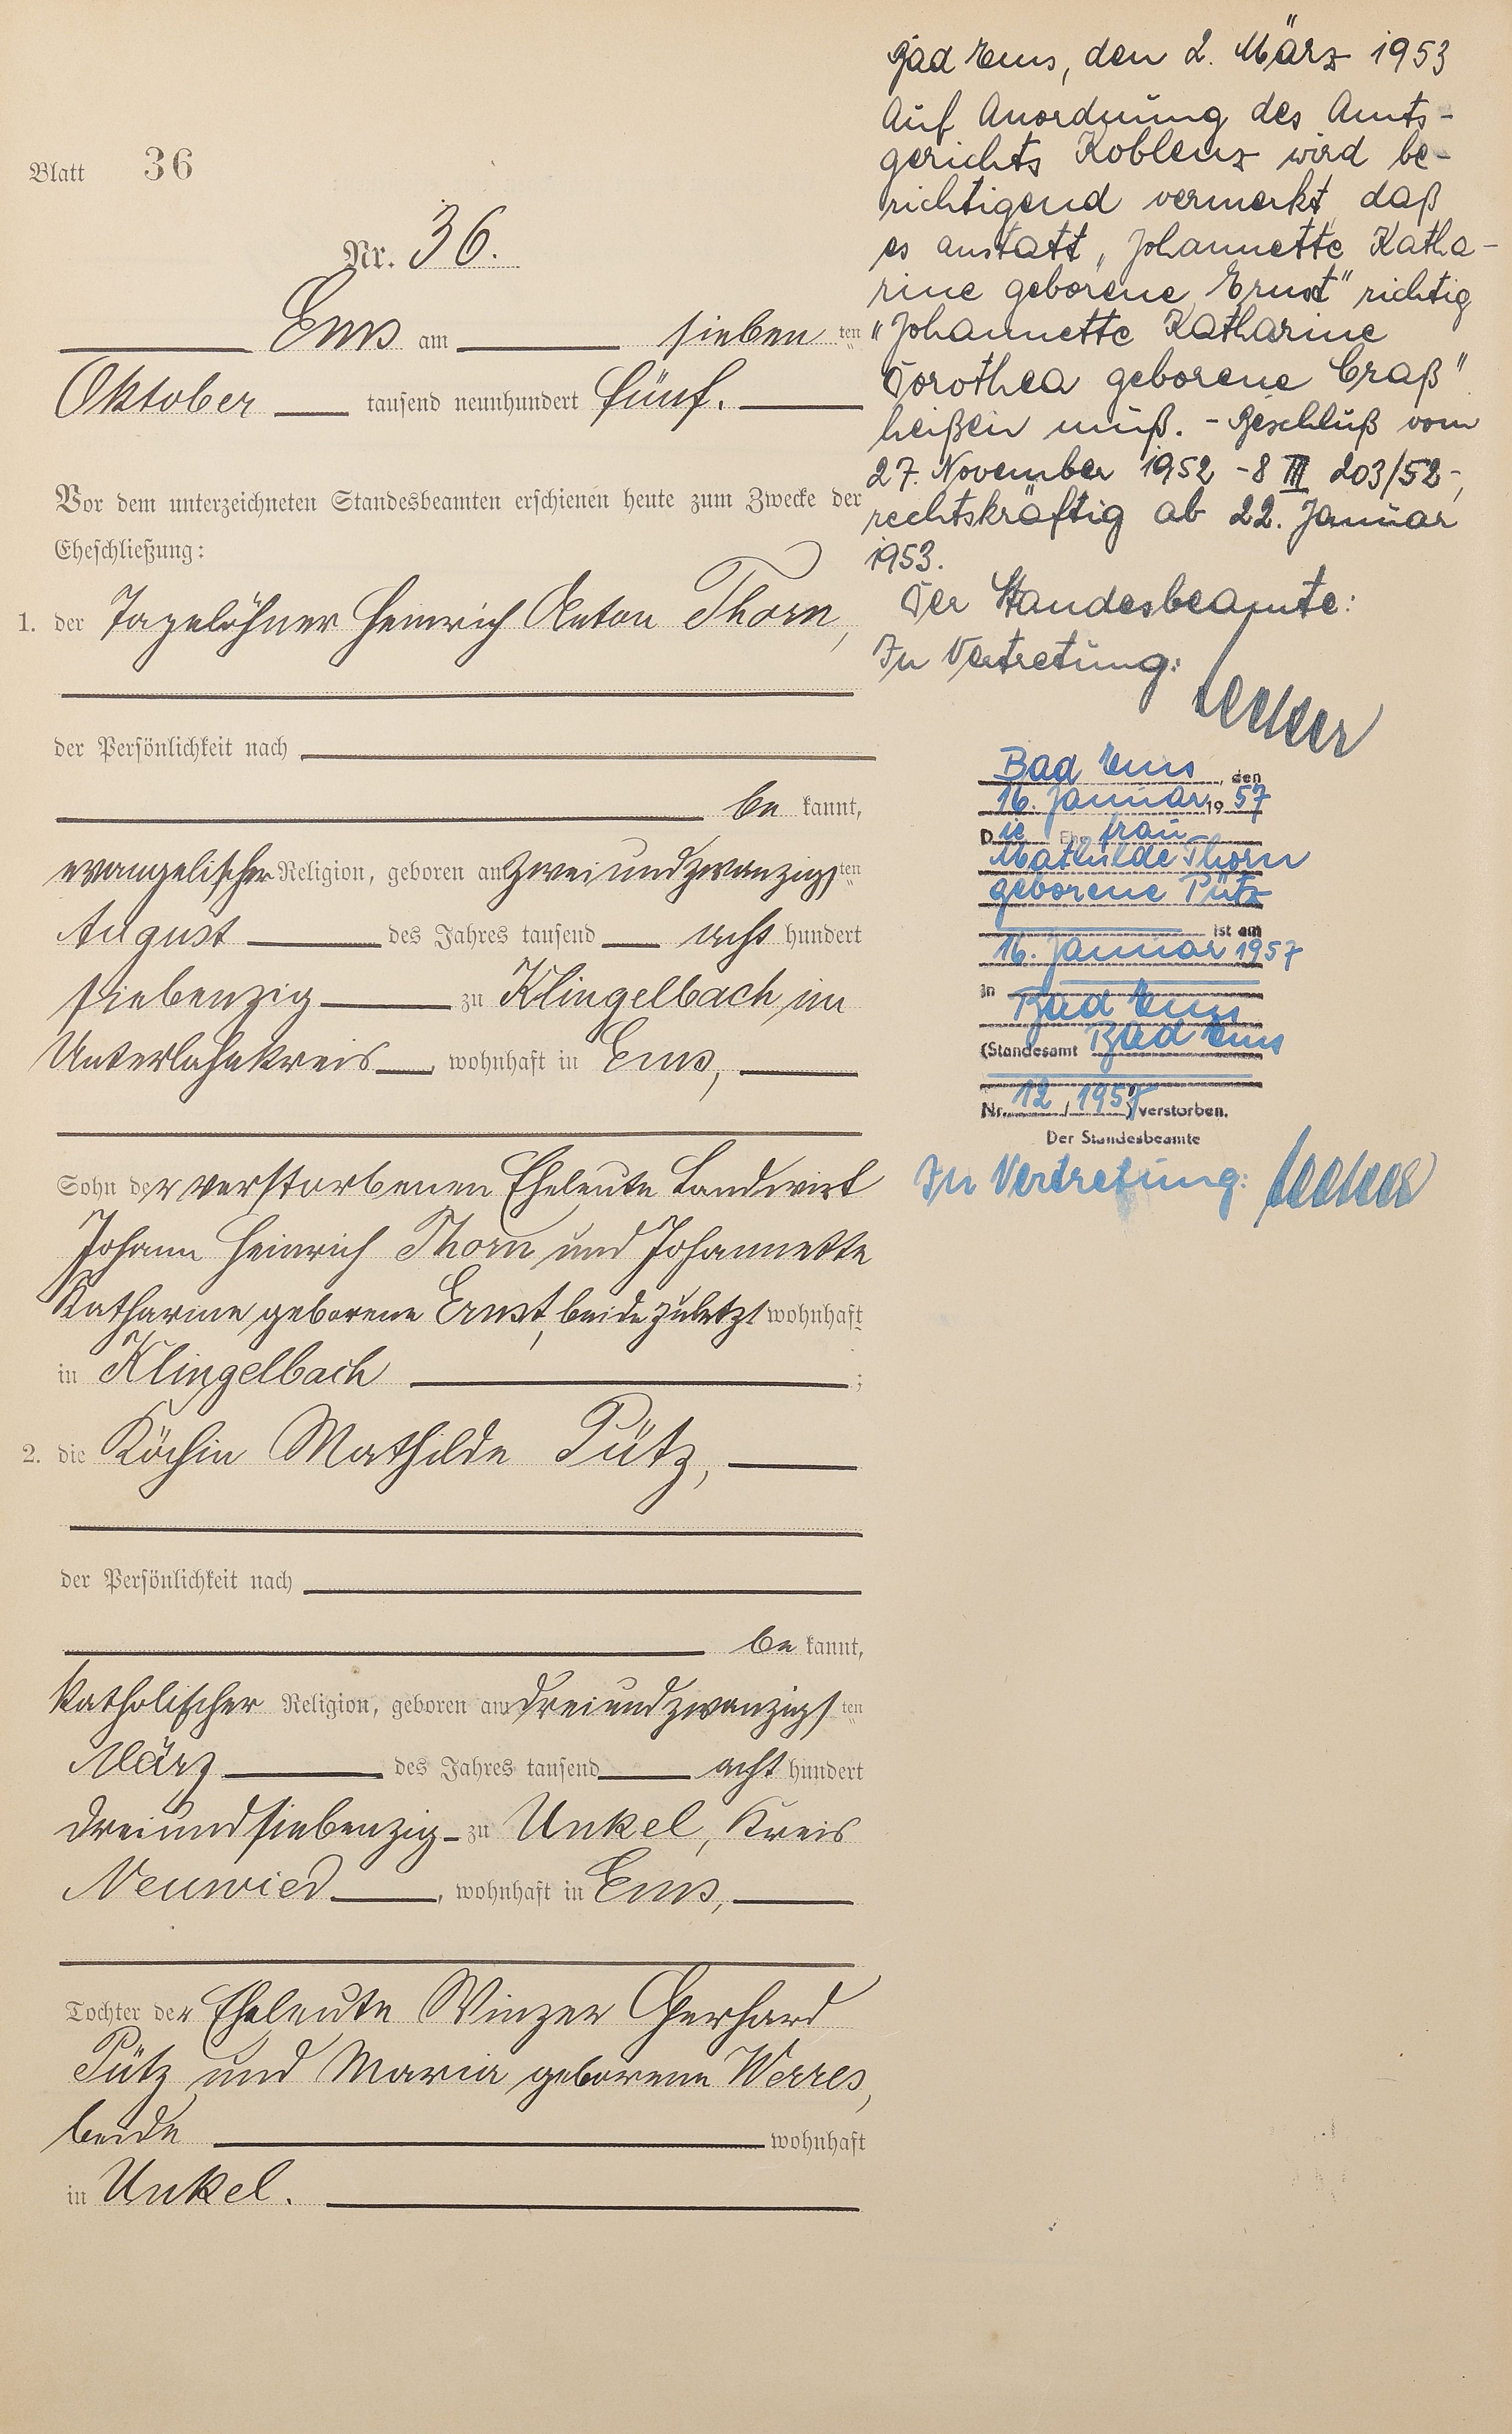 Blatt 36
Nr. 36.
Ems am sieben ten
Oktober tausend neunhundert fünf.
Vor dem unterzeichneten Standesbeamten erschienen heute zum Zwecke der
Eheschließung:
1. der Tagelöhner Heinrich Anton Thorn,
der Persönlichkeit nach
be kannt,
evangelischer Religion, geboren am zweiundzwanzigs ten
August des Jahres tausend acht hundert
siebenzig zu Klingelbach, im
Unterlahnkreis, wohnhaft in Ems,
Sohn der verstorbenen Eheleute Landwirt
Johann Heinrich Thorn und Johannette
Katharine geborene Ernst, beide zuletzt wohnhaft
in Klingelbach ;
2. die Köchin Mathilde Pütz,
der Persönlichkeit nach
be kannt,
katholischer Religion, geboren am dreiundzwanzigs ten
März des Jahres tausend acht hundert
dreiundsiebenzig zu Unkel, Kreis
Neuwied, wohnhaft in Ems,
Tochter der Eheleute Winzer Gerhard
Pütz und Maria geborene Werres,
beide wohnhaft
in Unkel.
Bad Ems, den 2. März 1953
Auf Anordnung des Amts-
gerichts Koblenz wird be-
richtigend vermerkt, daß
es anstatt „Johannette Katha-
rine geborene Ernst" richtig
„Johannette Katharine
Dorothea geborene Craß"
heißen muß. - Beschluß vom
27. November 1952 - 8 III 203/52 -,
rechtskräftig ab 22. Januar
1953.
Der Standesbeamte:
In Vertretung:
Bad Ems, den
16. Januar 1957
Die Ehefrau
Mathilde Thorn
geborene Pütz
ist am
16. Januar 1957
in Bad Ems
(Standesamt Bad Ems
Nr. 12 / 1957) verstorben.
Der Standesbeamte
In Vertretung: